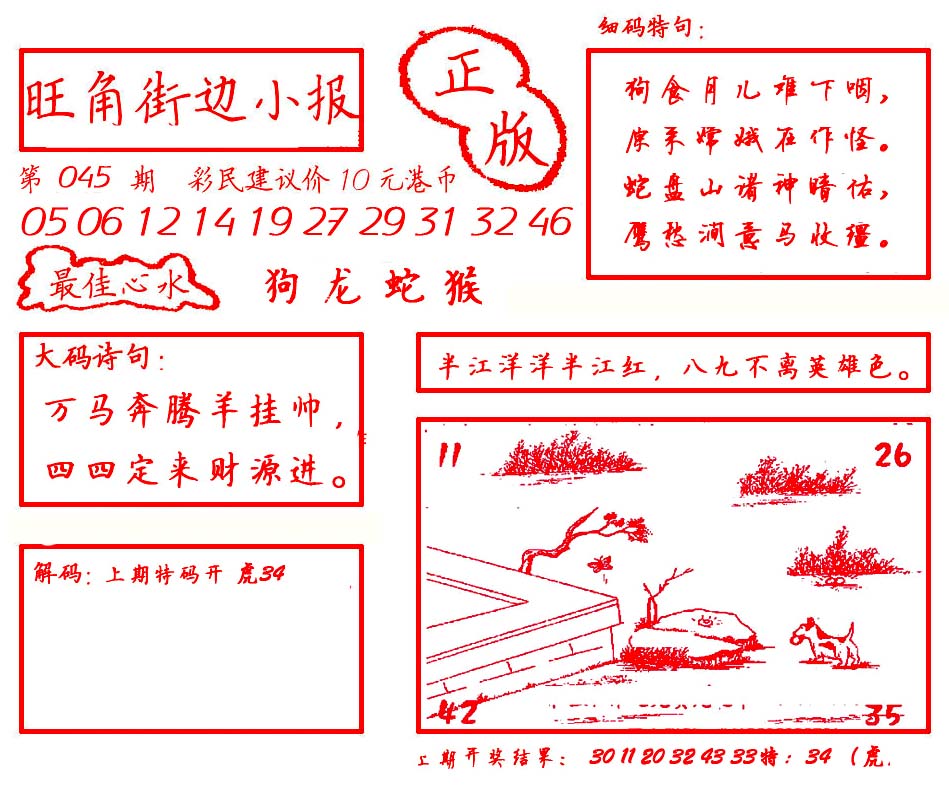 旺角街边小报
正版
第 045 期 彩民建议价10元港币
05 06 12 14 19 27 29 31 32 46
最佳心水 狗龙蛇猴
细码特句：
狗食月儿难下咽，
原来嫦娥在作怪。
蛇盘山诸神暗佑，
鹰愁涧意马收缰。
大码诗句：
万马奔腾羊挂帅，
四四定来财源进。
半江洋洋半江红，八九不离英雄色。
解码：上期特码开 虎34
11 26
42 35
上期开奖结果： 30 11 20 32 43 33特：34（虎.